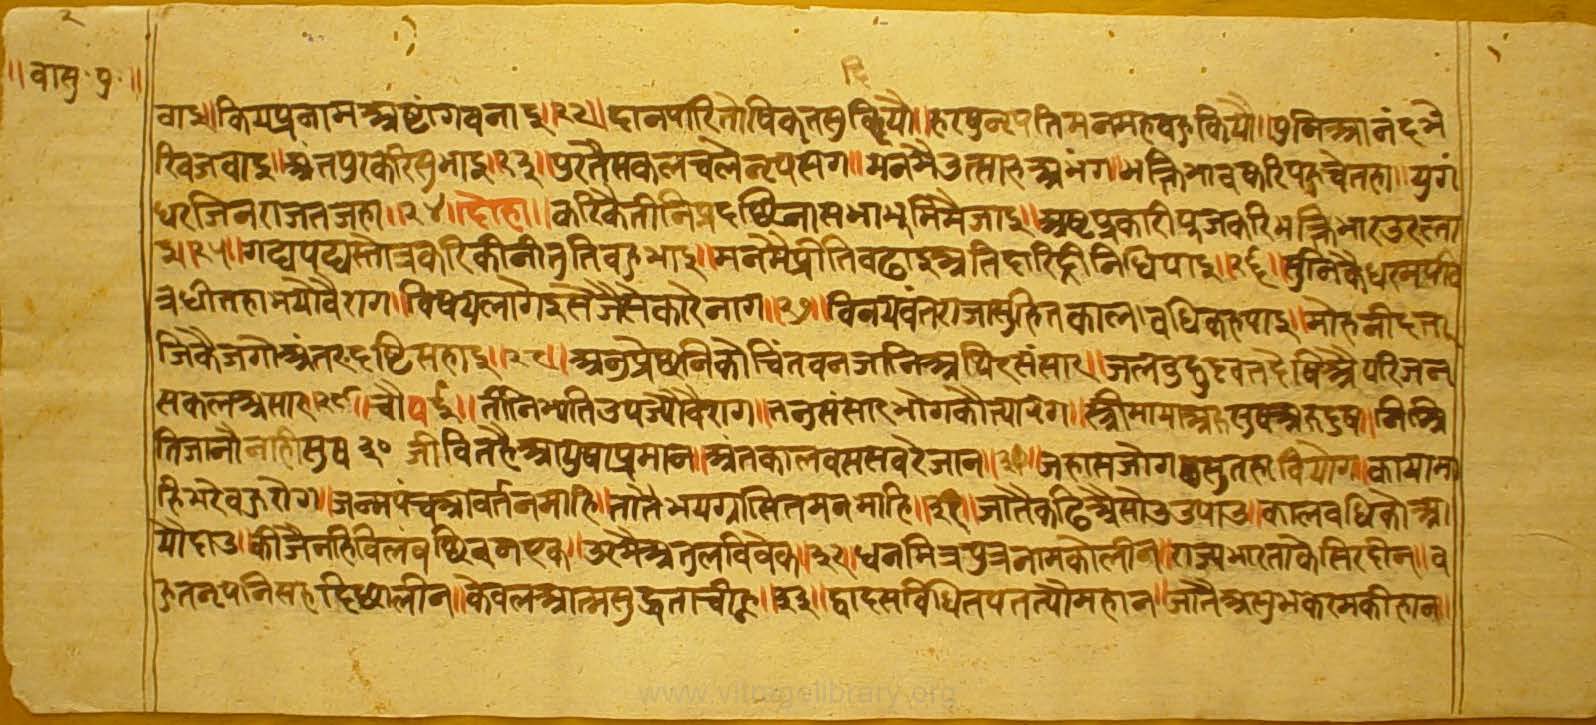 २
॥वासु॰पु॰॥
वाइ॥कियप्रनामअष्टांगवनाइ॥२२॥दानपारितोषिकतसुकियौ॥हरपुनृपतिमनमहवहुकियौ॥पुनिआनंदभे
रिवजवाइ॥अंतपुरकरिसुभाइ॥२३॥पुरतैसकलचलेनृपसग॥मनमैउत्साहअभंग॥भक्तिभावकरिपहुचेतहा॥युगं
धरजिनराजतजहा॥२४॥दोहा॥करिकैतीनिप्रदष्यिनासभाभूमिमैजाइ॥अष्टप्रकारीपूजकरिभक्तिभारउरल्या
इ॥२५॥गद्यपद्यस्तोत्रकरिकीनीनुतिवहुभाइ॥मनमैप्रीतिवढाइअतिदारिद्रीनिधिपाइ॥२६॥सुनिकैधरमपवि
त्रधीतहाभयोवैराग॥विषयलागैइसेजैसेकारेनाग॥२७॥विनयवंतराजासुहितकाललवधिकहपाइ॥मोहनीदत
जिकैजगोअंतरदृष्टिसहाइ॥२८॥अनुप्रेष्यनिकोचिंतवनजानिअथिरसंसार॥जलवुदवुदवतदेषिअैपरिजन
सकलअसार॥२९॥चौपई॥तीनिभ्यतिउपज्योवैराग॥तनुसंसारभोगकोत्याग॥स्त्रीमायाअरुसुषअरुदुष॥निश्चि
तिजानौनाहीसुष३०जीवितहैआयुषाप्रमान॥अंतकालवससवरेजान॥३१॥जहासजोगसुतहावियोग॥कायामा
हिभरेवहुरोग॥जन्मपंचआवर्तनमाहि॥तातैभयग्रासितमनमाहि॥३१॥जातैकढिअैसोउउपाउ॥काललवधिकोआ
योदाउ॥कीजैनहिविलंवष्यिनएक॥उरमैअतुलविवेक॥३२॥धनमित्रपुत्रनामकोलीन॥राज्यभारताकैसिरदीन॥व
हुतनृपनिसहदिष्यालीन॥केवलआत्मसुद्धताचीह्न॥३३॥द्वादसविधितपतप्योमहान॥जातैअसुभकरमकीहान॥
www.vitragelibrary.org